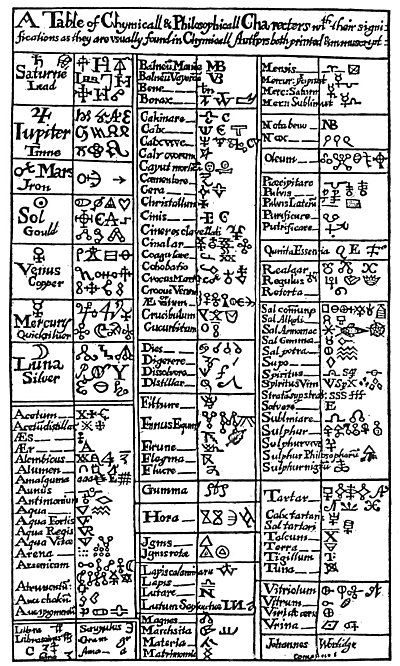 A Table of Chymicall & Philosophicall Charecters wth their signi-
fications as they are usually found in Chymicall Authors both printed & manuscript
Saturne
Lead
Iupiter
Tinne
Mars
Iron
Sol
Gould
Venus
Copper
Mercury
Quicksilver
Luna
Silver
Acetum
Acetu distillat
Æs
Ær
Alembicus
Alumen
Amalgama
Annus
Antimonium
Aqua
Aqua Fortis
Aqua Regis
Aqua Vitae
Arena
Arsenicum
Auripigment
Libra
Scrupulus
Gran
Balneu Mariae MB
Balneu Vaporis VB
Bene
Borax
Calcinare
Calx
Calx vive
Calx ovorum
Caput mortuu
Caementare
Cera
Christallum
Cinis E C
Cineres clavellati
Cinabar
Coagulare
Cohobatio
Crocus Martis
Crocus Veneris
Æs Ustum
Crucibulum
Cucurbitum
Dies
Digerere
Dissolvere
Distillar
Filtrare
Fimus Equin
Flegma
Fluere
Gumma
Hora
Ignis
Ignis rota
Lapis calaminare
Lapis
Lutare
Lutum Sapientiae
Magnes
Marchsita
Materia
Matrimonium
Mensis
Mercur: Saturn
Mercu Sublimat
Notabene NB
Nox
Oleum
Praecipitare
Pulvis
Pulvis Laterum
Purificare
Putrificare
Quinta Essencia Q E
Realgar
Regulus
Retorta
Sal comune
Sal Alkali
Sal Armoniac
Sal Gemma
Sal petra
Sapo
Spiritus
Spiritus Vini
Stratu sup strat SSS
Solvere
Sublimare
Sulphur
Sulphur vive
Sulphur Philosophoru
Sulphur nigru
Tartar
Calx tartari
Sal tartari
Talcum
Terra
Tigillum
Tutia
Vitriolum
Vitrum
Viride aeris
Urina
Johannes Worlidge